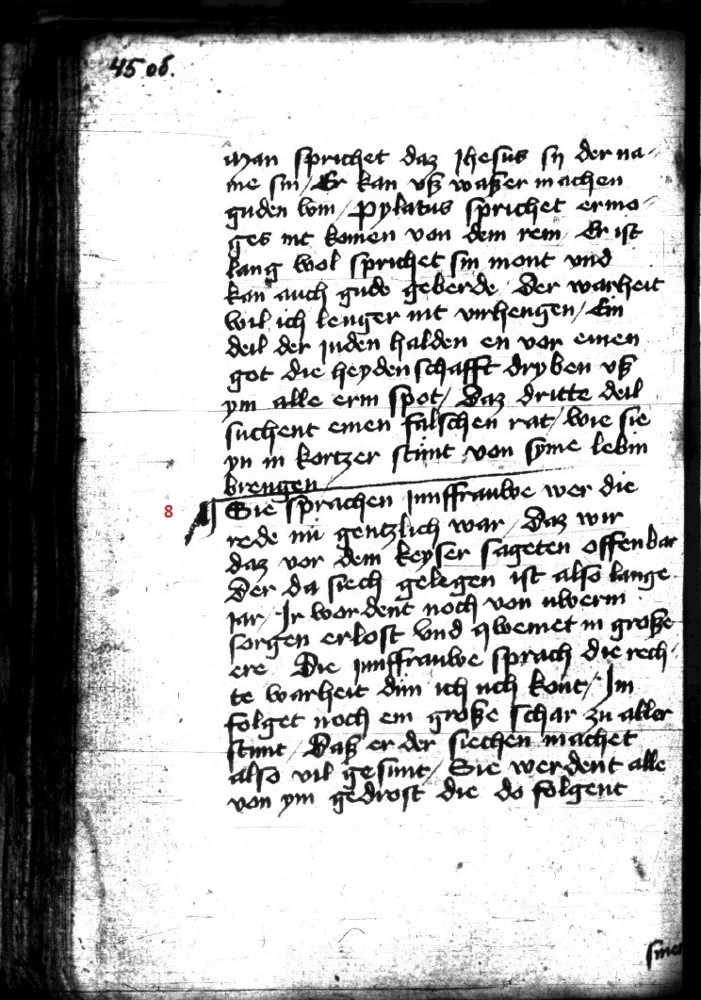 45 ob.
Man sprichet daz Jhesus sy der na-
me sin / Er kan uß waßer machen
guden win / Pylatus sprichet er mo-
ges nit komen von dem rein / Er ist
lang wol sprichet sin mont vnd
kan auch gude geberde / Der warheit
wil ich lenger nit virhengen / Ein
deil der juden halden en vor einen
got die heydenschafft dryben uß
ym alle ern spot / Daz dritte deil
suchent einen falschen rat / wie sie
yn in kortzer stunt von syme lebin
brengen
8
Sie sprachen junffrauwe wer die
rede nu gentzlich war / Daz wir
daz vor dem keyser sageten offenbar
Der da siech gelegen ist also lange
jar / Jr wordent noch von uwern
sorgen erlost vnd qwemet in große
ere Die junffrauwe sprach die rech-
te warheit dun ich uch kont / Im
folget noch ein große schar zu aller
stunt / Daß er der siechen machet
also vil gesunt / Sie werdent alle
von ym gedrost die do folgent